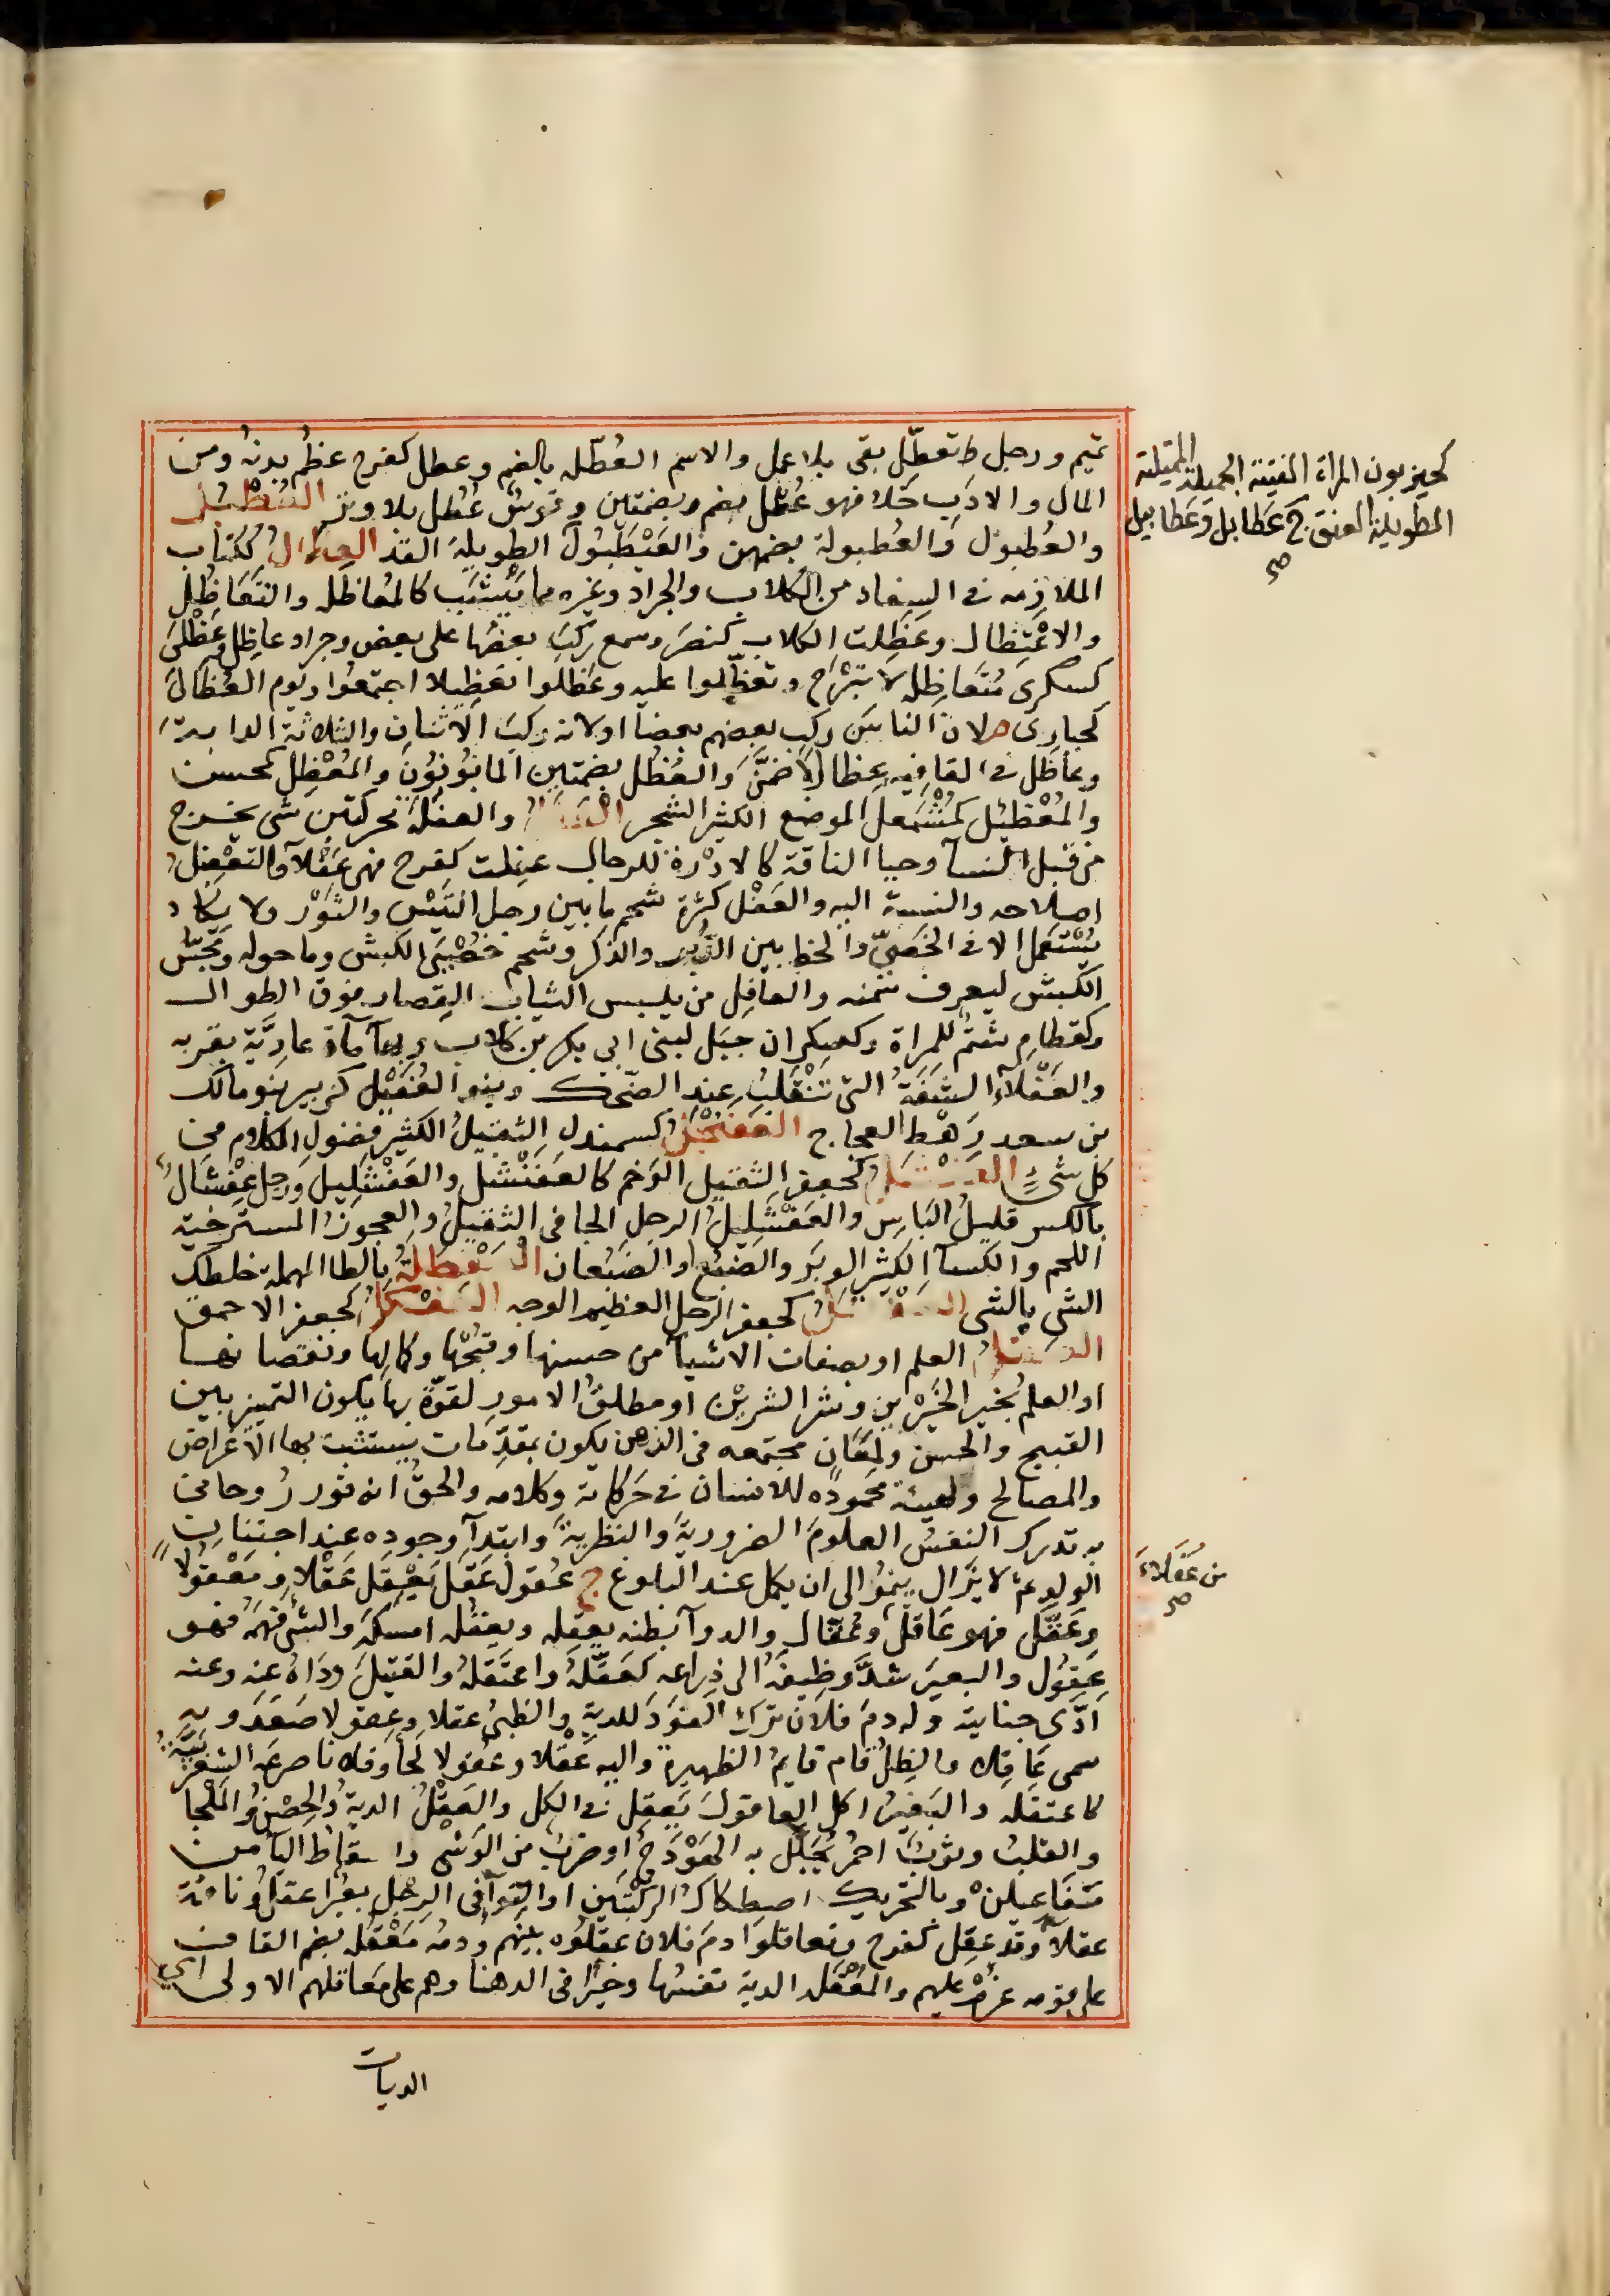 تميم ورجل ط تعطّل بقى بلا عمل والاسم العُطْله بالضم وعطل كفرح عظُم بدنهُ ومن
المال والادَب خَلا فهو عُطْل بضم وبضمتين وقوسٌ عُطل بلا وتر العُطْبُل
والعُطبوُل والعُطبولة بضمهن والعَيْطَبُولُ الطويلةَ القد العِظالُ ككتاب
الملازمه في السِفاد من الكلاب والجراد وغيره مما يَتَشبَّب كالمُعاظَله والتَعَاظُل
والاعْتِظال وعَظِلت الكلاب كنصَر وسمع رَكِبَ بعضُها على بعض وجراد عاظِل وعَظْلَى
كسكرى مُتَعاظِله لا تبْرَاح وتعظّلوا عليه وعَظَّلوا تَعظِيلا اجتمعُوا ويَوم العُظَالَى
كحبارى م لان الناسَ ركِب بعضهم بعضا او لانه ركِبَ الاثنان والثلاثة الدابة
وعاظَل في القافيه عِظالا ضَمَّنَ والعُظُل بضمتين المابُونُونَ والمُعْظِل كمحسن
والمُعْظَئِل كمُشْمَعِل الموضع الكثير الشجر العَفَلُ والعفلَة محركتين شى يخرج
من قُبل النسآ وحيا الناقة كالادْرة للرجال عفِلت كفرح فهى عَفْلآ والتعْفِيل
اصلاحه والنسبة اليه والعَفْل كثرة شحم ما بين رجلَ التَيْس والثَوْر ولا يكاد
يُسْتَعمل الا فى الخَصِىّ والخط بين الدُّبر والذكر وشحم خُصْيَىِ الكبش وما حوله ومَجَسُّ
الكبش ليعرف سمنه والعافِل من يلبس الثيابَ القِصار فوق الطوال
وكقطامِ شتمٌ للمراة وكعسكران جبَل لبنى ابي بكر بن كلاب ولها مآة عاديَّة بقربه
والعَفْلآُ الشفَةُ التى تَنْقَلِبُ عند الضحك وبنو العُفَيْل كزبير بنو مالك
بن سعد رَهْط العجاج العَفَنْجَلُ كسمندل الثقيلُ الكثير فضول الكلام من
كل شىٍ العَفْشَلُ كجعفر الثقيل الوَخم كالعَفَنْشَل والعَفْشَلِيل ورجل عِفْشالٌ
بالكسر قليلُ البَاس والعَفْشَلِيلُ الرجل الجافى الثقيلُ والعجوزُ المسترخية
اللحم والكسآ الكثير الوبَر والضبُع او الضِبْعان العَفْطَلَةُ بالطا المهملة خلطك
الشى بالشى العَفْقَلُ كجعفر الرجل العظيم الوجه العَفْكَلُ كجعفر الاحمق
العَقْلُ العلم او بصفات الاشيآ من حسنها وقبْحها وكمالها ونقصانها
او العلم بخير الخَيْرين وشر الشرين او مطلقٌ الامورِ لقوّة بها يكون التمييز بين
القبيح والحسن ولمعانٍ مجتمعه فى الذهن يكون بمقدِّمات يستتب بها الاغراض
والمصالح ولهيئة محمودَه للانسان في حَركاته وكلامه والحقُّ انه نور رُوحانى
به تدرك النفسُ العلومَ الضرورية والنظرية وابتدآ وجوده عند اجتنان
الولد ثم لا يَزال ينمُو الى ان يكمل عند البلوغ ج عُقول عَقَل يَعْقِل عَقْلا ومَعْقُولا
وعَقَّل فهو عَاقل وعُقّال والدوآ بطنه يعقِله ويعقُله امسكَه والشىَ فهمَه فهو
عَقُول والبعيرَ شدَّ وظِيفَه الى ذِراعه كعَقَّلَهُ واعتَقَلهُ والقتيلَ ودَاهُ عنه وعنه
ادّى جنايته وله دمَ فلان ترك القوَدَ للدية والظبىُ عقلا وعقولا صَعَدَ وبه
سمى عَاقِلا والظِلُ قام قايمُ الظهيرة واليه عَقْلا وعُقولا لَجأ وفلانا صرعَه الشغزبيَّةَ
كاعتقَله والبَعيرُ اكل العاقولَ يَعقِل في الكل والعَقْلُ الديةُ والحِصْنُ والمَلجا
والقلبُ وثوبٌ احمرُ يُجَلَّل به الهَوْدَجُ او ضربٌ من الوَشى واسقاطُ اليآ من
مَفَاعيلن وبالتحريك اصطكاكُ الركبَتين او التوآ فى الرِجْل بعيرٌ اعقلُ وناقة
عقلآُ وقد عقِل كفرح وتعاقلوا دمَ فلان عقَلُوه بينهم ودمُه مَعْقُله بضم القاف
على قومه غُرْم عليهم والمَعْقُله الدية نفسُها وخَبْرا فى الدهنا وهم على مَعاقلهم الاولى اي
الديات
كحيزبون المراة الفتية الجميلة الممتلية
الطويلة العنق ج عَطابل وعَطابيل
صح
من عُقَلاءَ
صح